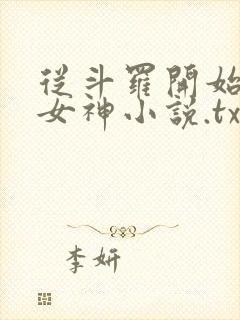 從斗羅開始
女神小說.tx
李妍